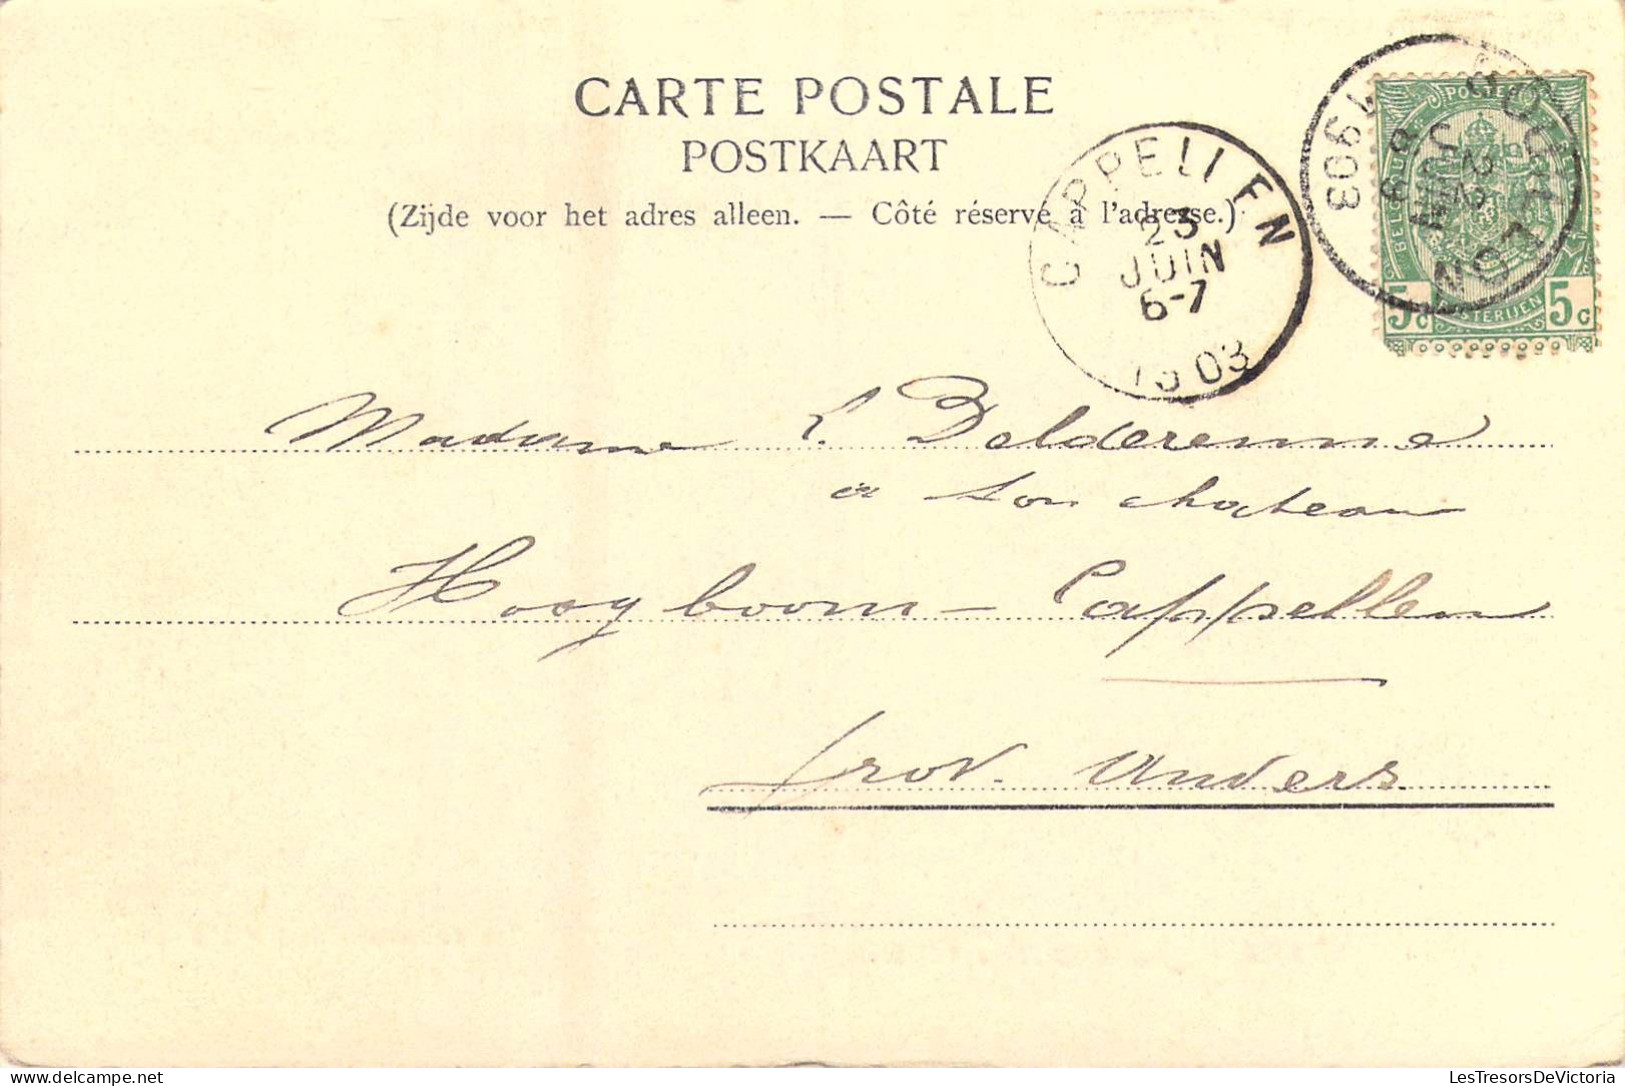 CARTE POSTALE
POSTKAART
(Zijde voor het adres alleen. — Côté réservé à l'adresse.)
CAPPELLEN
23
JUIN
6-7
1903
BOUILLON
22
JUIN
1903
POSTES
BELGIQUE
POSTERIJEN
5c 5c
Madame L. Delderenne
à son chateau
Hoogboom - Cappellen
prov. Anvers.
LesTresorsDeVictoria